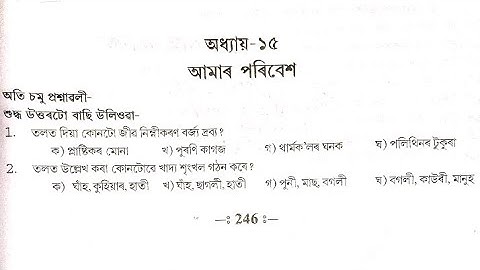 অধ্যায়-১৫
আমাৰ পৰিবেশ
অতি চমু প্ৰশ্নাৱলী-
শুদ্ধ উত্তৰটো বাছি উলিওৱা-
1. তলত দিয়া কোনটো জীৱ নিম্নীকৰণ বৰ্জ্য দ্ৰব্য?
ক) প্লাষ্টিকৰ মোনা খ) পুৰণি কাগজ গ) থাৰ্মক'লৰ ঘনক ঘ) পলিথিনৰ টুকুৰা
2. তলত উল্লেখ কৰা কোনটোৱে খাদ্য শৃংখল গঠন কৰে?
ক) ঘাঁহ, কুহিয়াৰ, হাতী খ) ঘাঁহ, ছাগলী, হাতী গ) পুনী, মাছ, বগলী ঘ) বগলী, কাউৰী, মানুহ
–ঃ 246 ঃ–